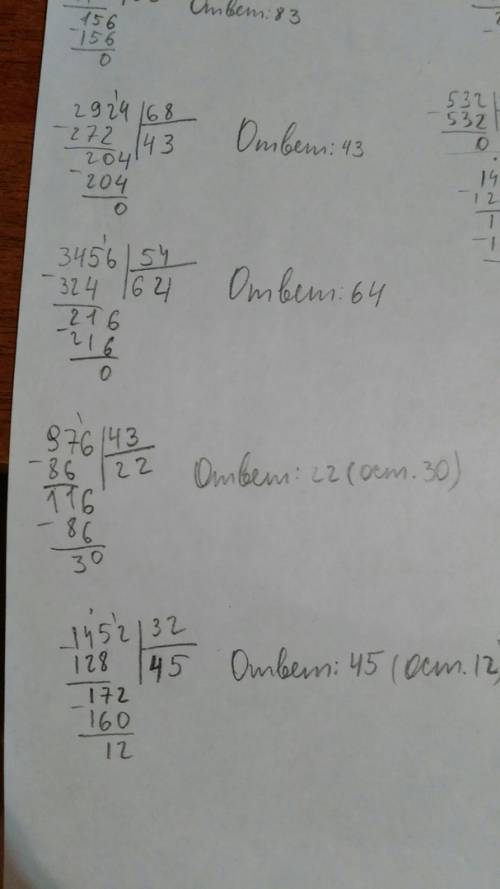 156
-156
0
Ответ: 83
2924 | 68
-272 | 43
204
-204
0
Ответ: 43
3456 | 54
-324 | 64
216
-216
0
Ответ: 64
976 | 43
-86 | 22
116
-86
30
Ответ: 22 (ост. 30)
1452 | 32
-128 | 45
172
-160
12
Ответ: 45 (ост. 12)
532
-532
0
14
-12
1
-1